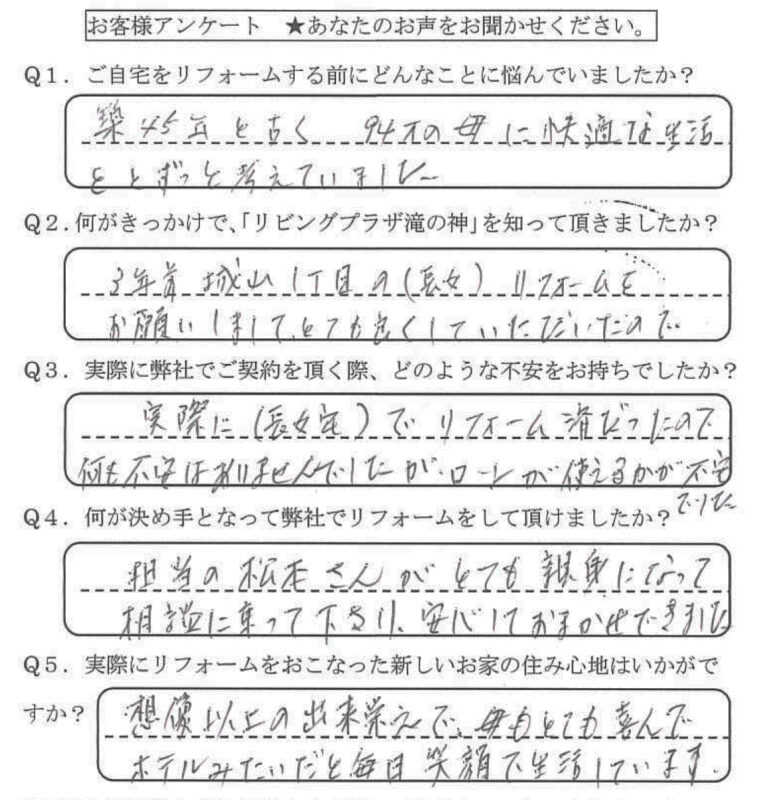 お客様アンケート ★あなたのお声をお聞かせください。
Q1. ご自宅をリフォームする前にどんなことに悩んでいましたか?
築45年と古く 94才の母に快適な生活
をとずっと考えていました
Q2.何がきっかけで、「リビングプラザ滝の神」を知って頂きましたか?
3年前 城山1丁目の(長女) リフォームを
お願いしまして、とても良くしていただいたので
Q3. 実際に弊社でご契約を頂く際、どのような不安をお持ちでしたか?
実際に(長女宅)でリフォーム済だったので
何も不安はありませんでしたが、ローンが使えるかが不安
でした
Q4. 何が決め手となって弊社でリフォームをして頂けましたか?
担当の松本さんがとても親身になって
相談に乗って下さり、安心しておまかせできました
Q5. 実際にリフォームをおこなった新しいお家の住み心地はいかがで
すか?
想像以上の出来栄えで、母もとても喜んで
ホテルみたいだと毎日笑顔で生活しています。